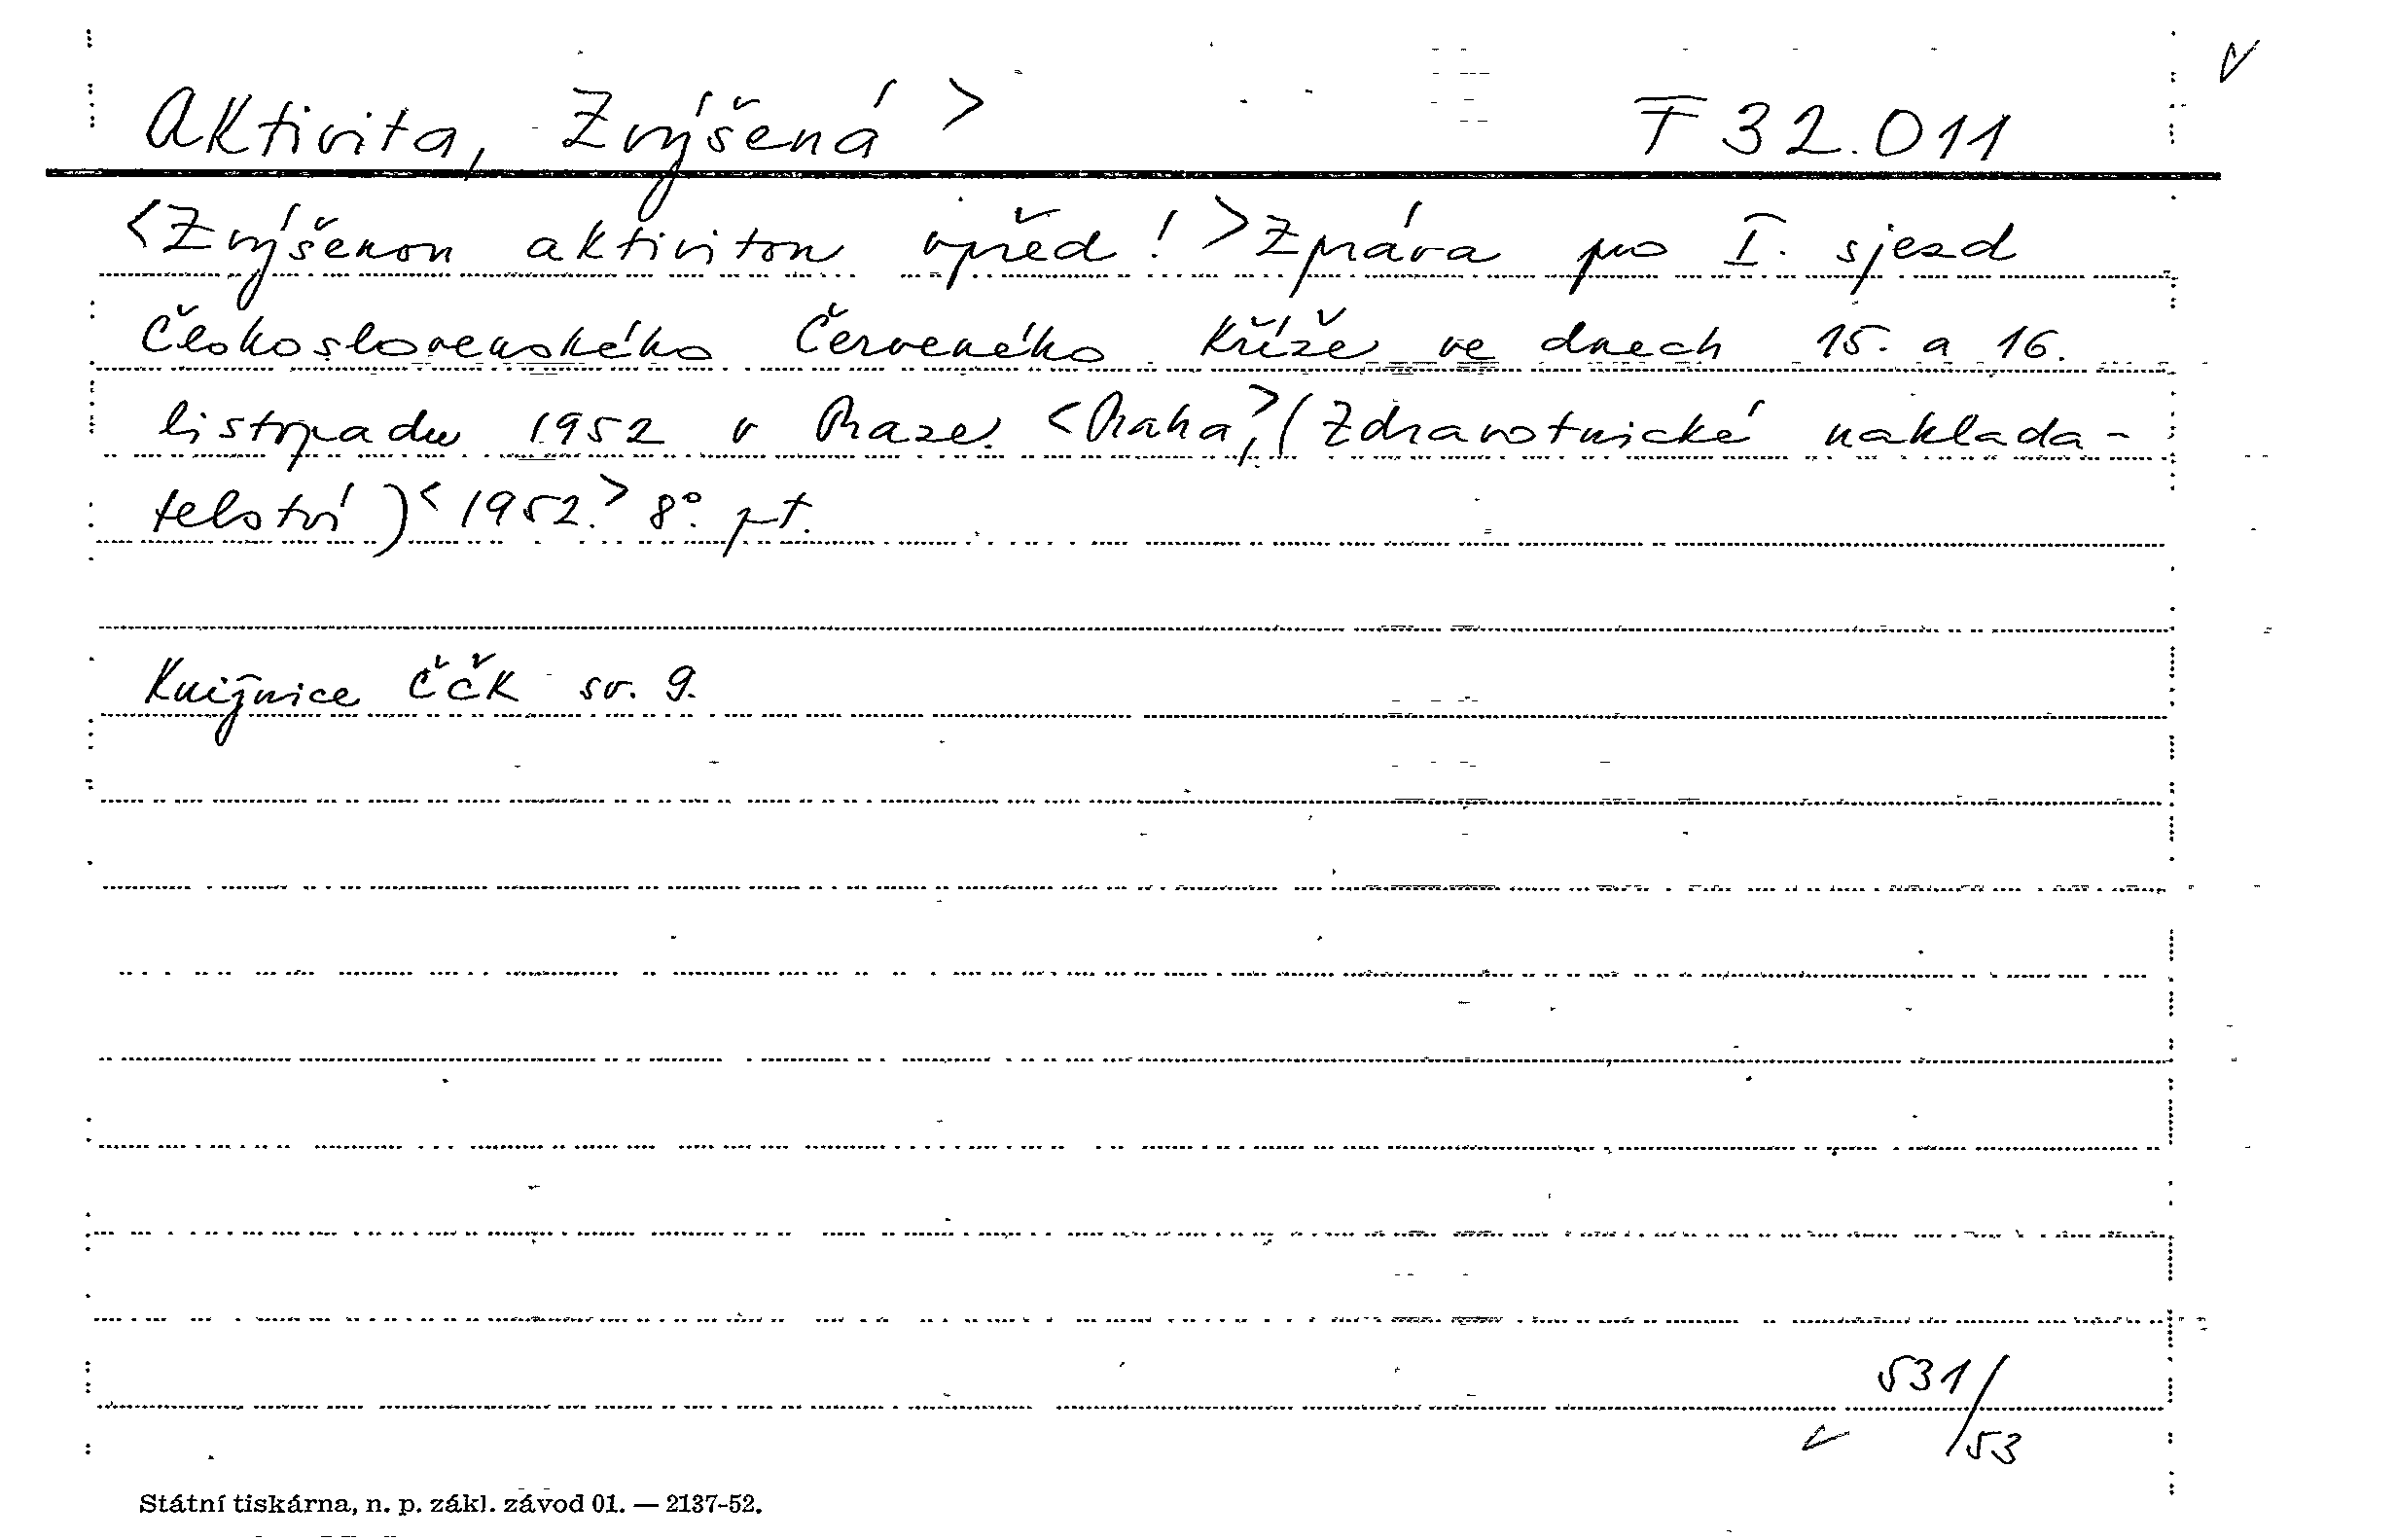 Aktivita, Zvýšená > F 32.011
<Zvýšenou aktivitou vpřed! > Zpráva pro I. sjezd
Československého Červeného Kříže ve dnech 15. a 16.
listopadu 1952 v Praze. <Praha,> (Zdravotnické naklada-
telství) <1952.> 8°. pt.
Knižnice ČČK sv. 9.
531/53
Státní tiskárna, n. p. zákl. závod 01. — 2137-52.